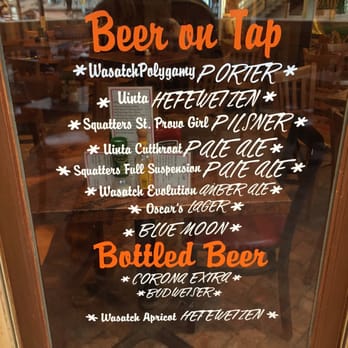 Beer on Tap
*WasatchPolygamy PORTER*
*Uinta HEFEWEIZEN*
*Squatters St. Provo Girl PILSNER*
*Uinta Cutthroat PALE ALE*
*Squatters Full Suspension PALE ALE*
*Wasatch Evolution AMBER ALE*
*Oscar's LAGER*
*BLUE MOON*
Bottled Beer
*CORONA EXTRA*
*BUDWEISER*
*Wasatch Apricot HEFEWEIZEN*